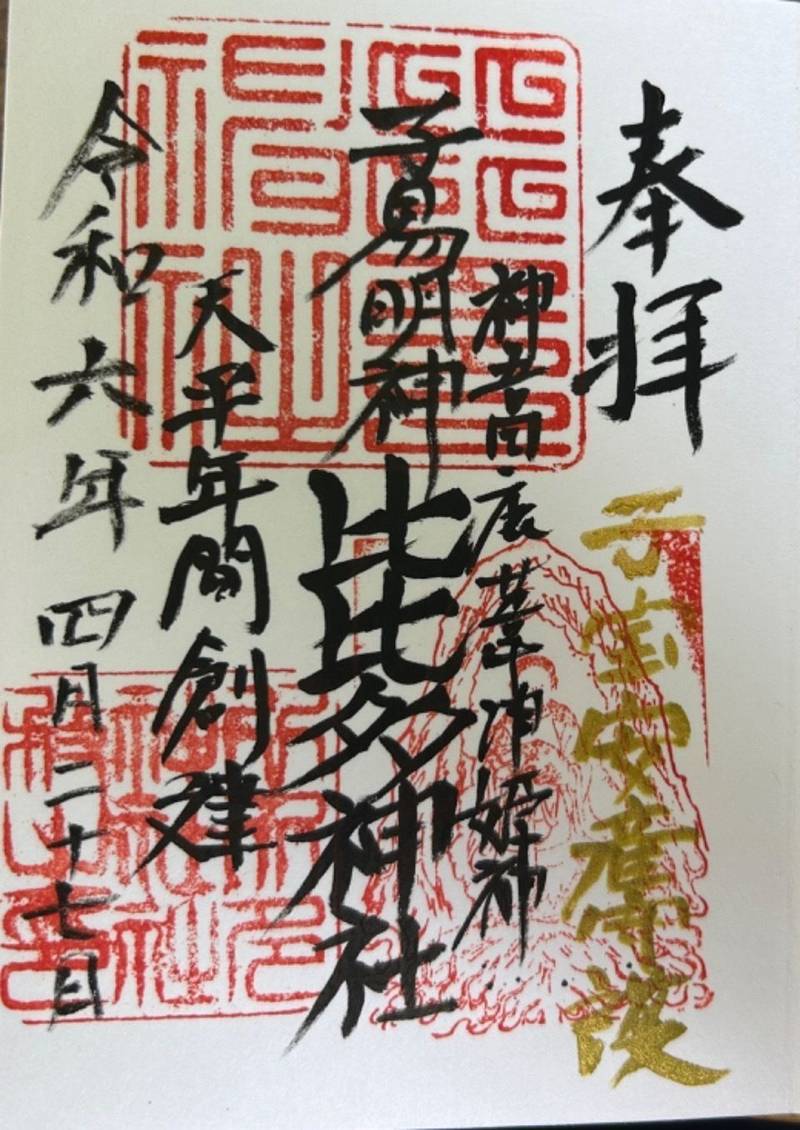 奉拝
子宝安産守護
神吾田鹿葦津姫神
子易明神
比比多神社
天平年間創建
令和六年四月二十七日